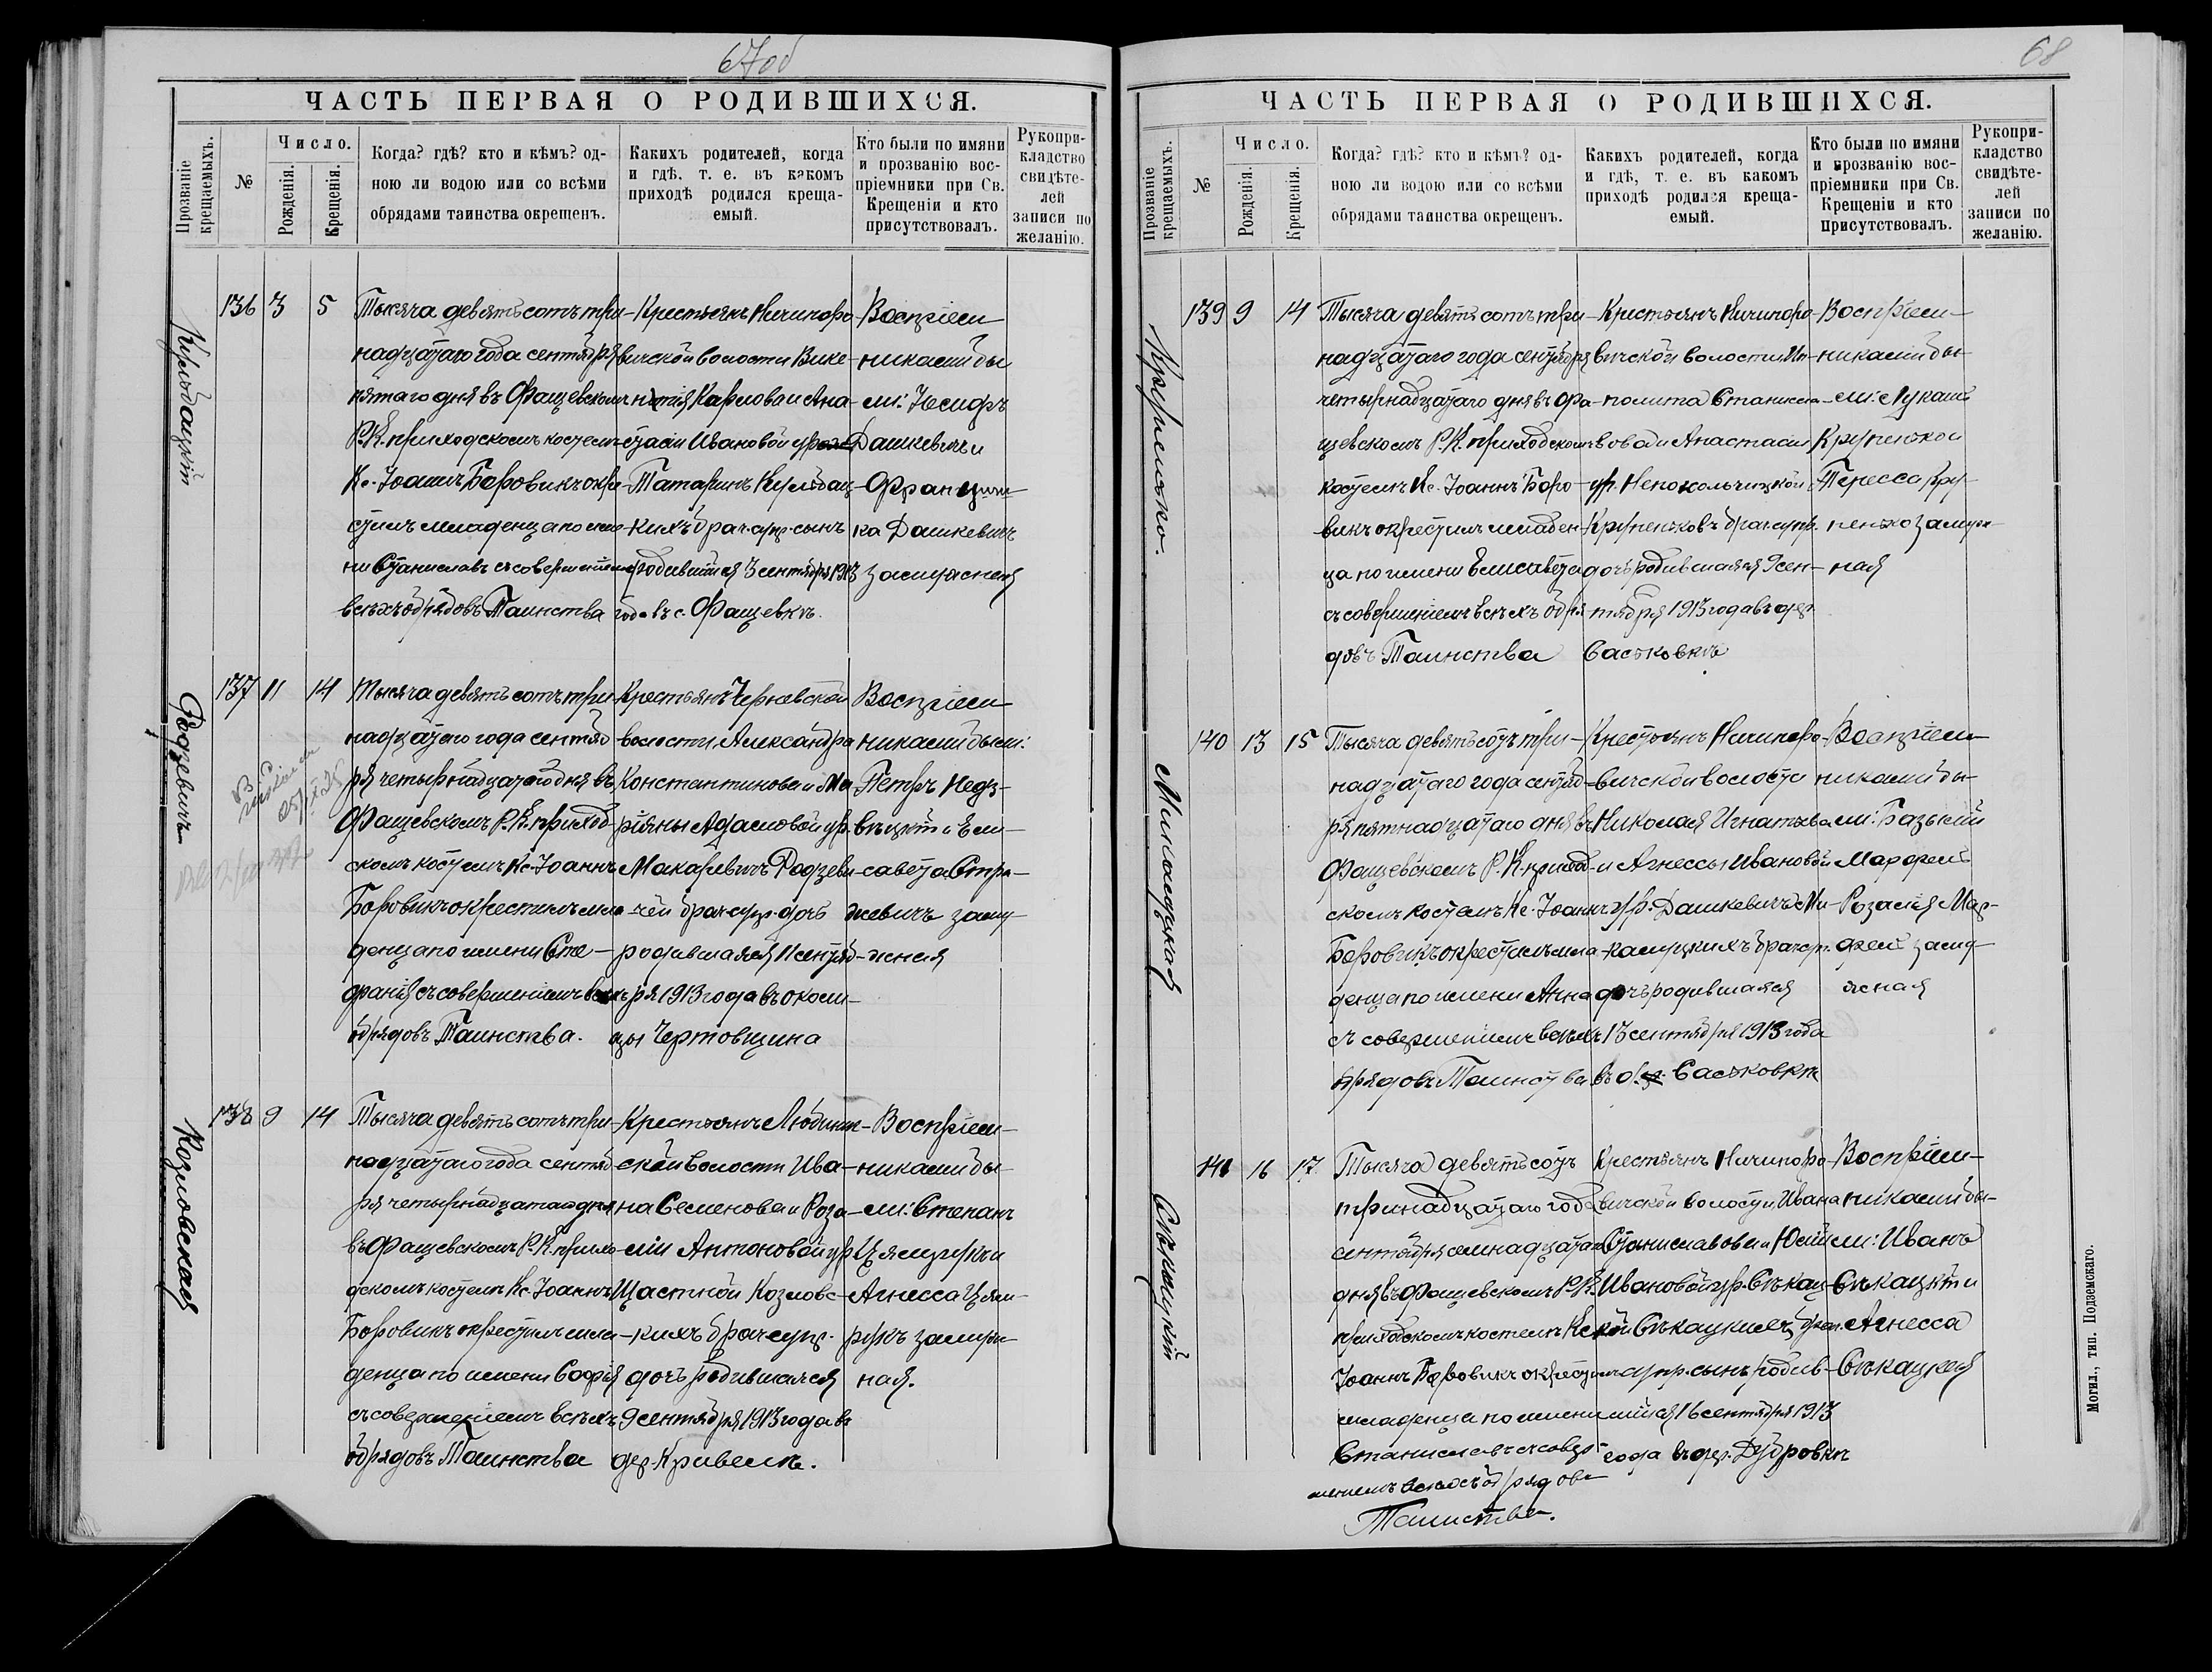 67об
ЧАСТЬ ПЕРВАЯ О РОДИВШИХСЯ.
Прозваніе крещаемыхъ.
№
Число.
Рожденія.
Крещенія.
Когда? гдѣ? кто и кѣмъ? од-
ною ли водою или со всѣми
обрядами таинства окрещенъ.
Какихъ родителей, когда
и гдѣ, т. е. въ какомъ
приходѣ родился креща-
емый.
Кто были по имяни
и прозванію вос-
пріемники при Св.
Крещеніи и кто
присутствовалъ.
Рукопри-
кладство
свидѣте-
лей
записи по
желанію.
136 3 5
Тысяча девятьсотъ три-
надцатаго года сентября
пятаго дня въ Фащевскомъ
Р.К. приходскомъ костелѣ
Кс. Іоаннъ Боровикъ окре-
стилъ младенца по име-
ни Станиславъ съ совершеніемъ
всѣхъ обрядовъ Таинства
Крестьянъ Ничипоро-
вичской волости Вике-
Карлова и Ана-
стасіи Ивановой ур.
Татаринъ
кихъ брач. супр. сынъ
родившійся 3 сентября 1913
года въ с. Фащевкѣ.
Воспріем-
никами бы
ли: Іосифъ
Дашкевичъ и
Франциш-
ка Дашкевичъ
замужняя
Родзевичъ
137 11 14
Тысяча девятьсотъ три-
надцатаго года сентяб
ря четырнадцатаго дня въ
Фащевскомъ Р.К. приход-
скомъ костелѣ Кс. Іоаннъ
Боровикъ окрестилъ мла-
денца по имени Сте-
фанія съ совершеніемъ всѣхъ
обрядовъ Таинства.
Крестьянъ Черневской
волости Александра
Константинова и Ма
ріяны Адамовой ур.
Макаревичъ Родзеви-
чей брач. супр. дочь
родившаяся 11 сентяб-
ря 1913 года въ околи-
цы Чертовщина
Воспріем-
никами были:
Петръ Недз-
вѣцкій и Ели-
савета Стри-
жевичъ заму-
жняя
Козловская
138 9 14
Тысяча девятьсотъ три-
надцатаго года сентяб
ря четырнадцатаго дня
въ Фащевскомъ Р.К. прихо-
дскомъ костелѣ Кс. Іоаннъ
Боровикъ окрестилъ мла-
денца по имени Софія
съ совершеніемъ всѣхъ
обрядовъ Таинства
Крестьянъ Любинич-
ской волости Ива-
на Семенова и Роза-
ліи Антоновой ур.
Щастной Козловс-
кихъ брач. супр.
дочь родившаяся
9 сентября 1913 года въ
дер. Кривелѣ.
Воспріем-
никами бы-
ли: Степанъ
Агнесса
замуж-
ная.
68
ЧАСТЬ ПЕРВАЯ О РОДИВШИХСЯ.
Прозваніе крещаемыхъ.
№
Число.
Рожденія.
Крещенія.
Когда? гдѣ? кто и кѣмъ? од-
ною ли водою или со всѣми
обрядами таинства окрещенъ.
Какихъ родителей, когда
и гдѣ, т. е. въ какомъ
приходѣ родился креща-
емый.
Кто были по имяни
и прозванію вос-
пріемники при Св.
Крещеніи и кто
присутствовалъ.
Рукопри-
кладство
свидѣте-
лей
записи по
желанію.
Крупенько.
139 9 14
Тысяча девятьсотъ три-
надцатаго года сентября
четырнадцатаго дня въ Фа-
щевскомъ Р.К. приходскомъ
костелѣ Кс. Іоаннъ Боро-
викъ окрестилъ младен-
ца по имени Елисавета
съ совершеніемъ всѣхъ обря-
довъ Таинства
Крестьянъ Ничипоро-
вичской волости Ип-
полита Станисла-
вова и Анастасіи
ур. Непокольчицкой
Крупеньковъ брач. супр.
дочь родившаяся 9 сен-
тября 1913 года въ дер.
Саськовкѣ
Воспріем-
никами бы-
ли: Лукашъ
Крупенько и
Тересса Кру-
пенько замуж-
ная
140 13 15
Тысяча девятьсотъ три-
надцатаго года сентяб-
ря пятнадцатаго дня въ
Фащевскомъ Р.К. приход-
скомъ костелѣ Кс. Іоаннъ
Боровикъ окрестилъ мла-
денца по имени Анна
съ совершеніемъ всѣхъ
обрядовъ Таинства
Крестьянъ Ничипоро-
вичской волости
Николая Игнатова
и Агнессы Ивановой
ур. Дашкевичъ Ми-
кацкихъ брач. супр.
дочь родившаяся
13 сентября 1913 года
въ дер. Саськовкѣ
Воспріем-
никами бы-
ли: Базылій
Марфель
Розалія Мар-
фель замуж-
жная
Сѣкацкій
141 16 17
Тысяча девятьсотъ
тринадцатаго года
сентября семнадцатаго
дня въ Фащевскомъ Р.К.
приходскомъ костелѣ Кс.
Іоаннъ Боровикъ окрестилъ
младенца по имени
Станиславъ съ совер-
шеніемъ всѣхъ обрядовъ
Таинства.
Крестьянъ Ничипоро-
вичской волости Ивана
Станиславова и Юліи
Ивановой ур. Сѣкац-
кой Сѣкацкихъ брач.
супр. сынъ родив-
шійся 16 сентября 1913
года въ дер. Дубровкѣ
Воспріем-
никами бы-
ли: Иванъ
Сѣкацкій и
Агнесса
Сѣкацкая
Могил., тип. Подземскаго.